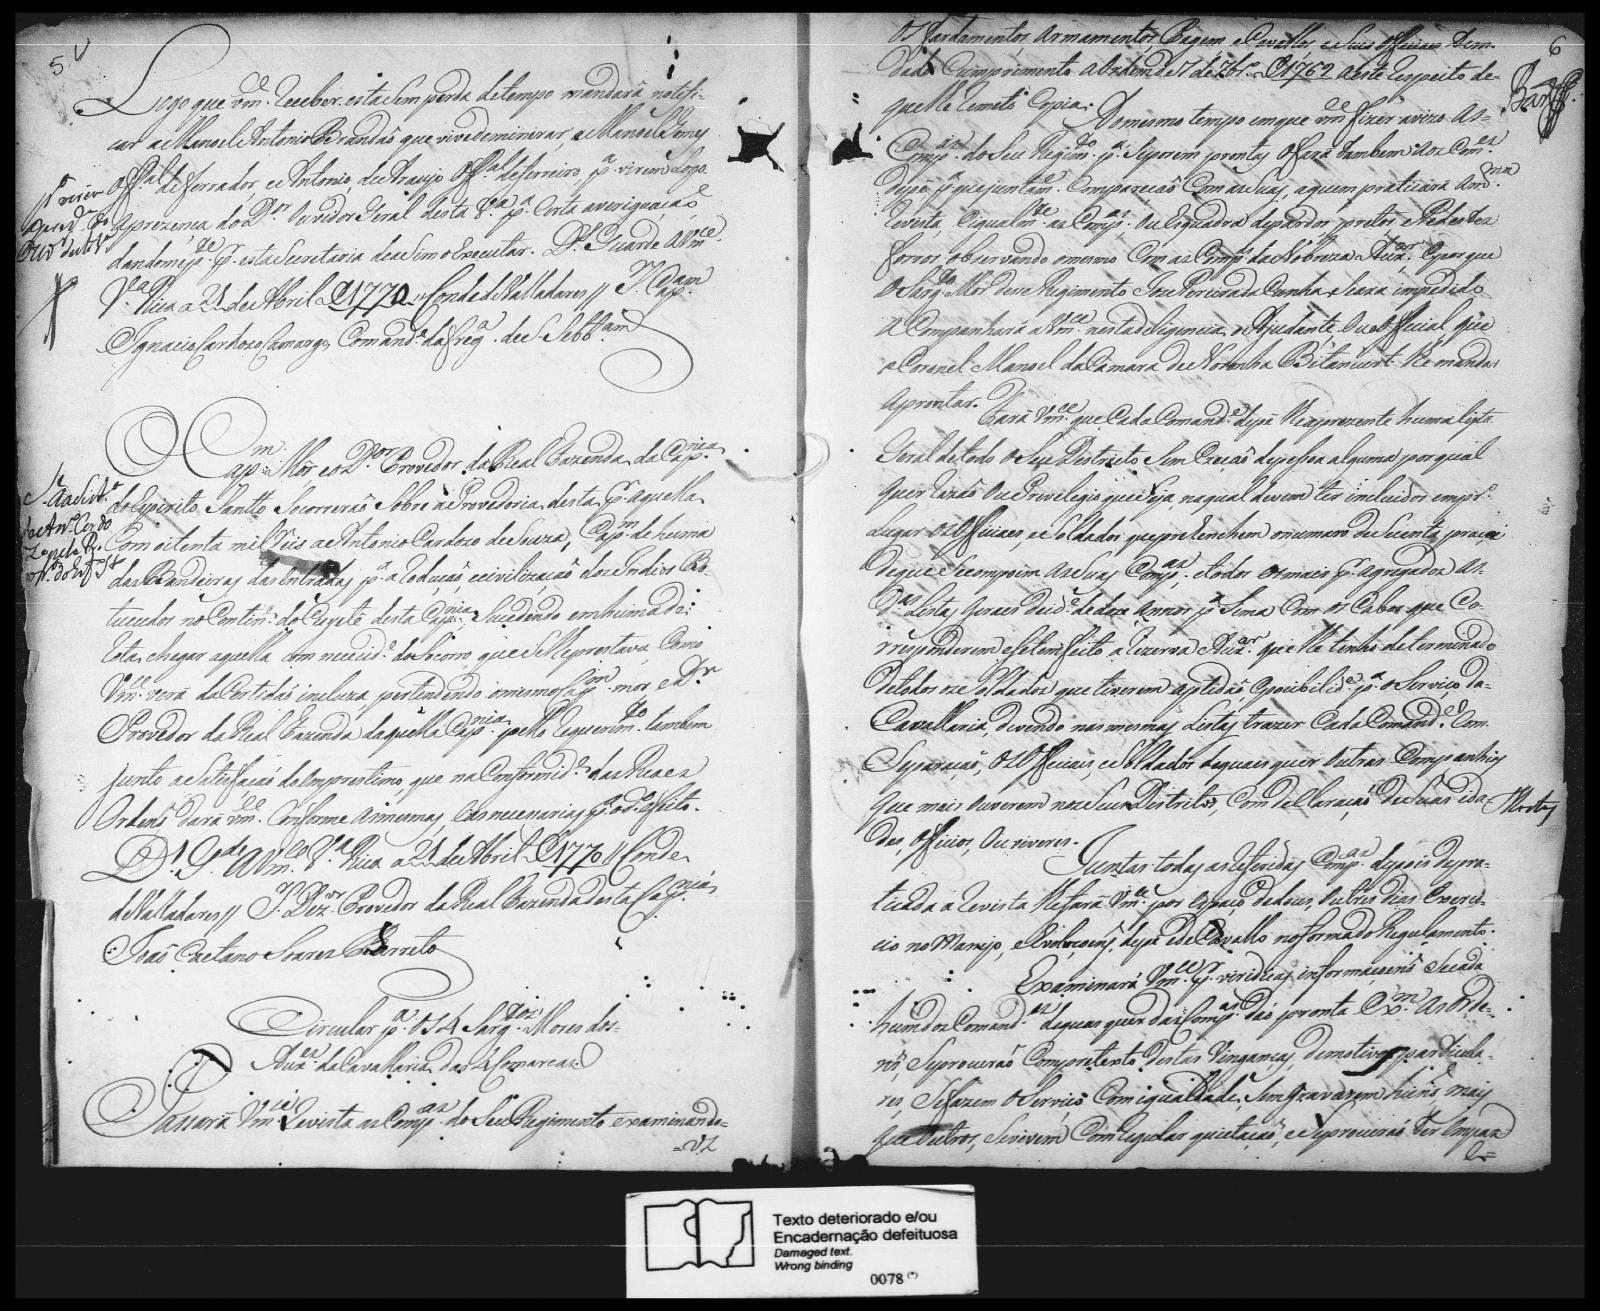 5v
Logo que vm.ce receber esta sem perda de tempo mandará notifi-
car a Manoel Antonio Brandaõ que vive de minerar, a Manoel
Off.al de ferrador, e a Antonio de Araujo Off.al de ferreiro, p.a virem logo
a prezença do D.or Ouvidor Geral desta V.a p.a certa averiguaçaõ
dandome p.te p.r esta Secretaria de assim o executar. D.s Guarde a Vm.ce
V.a Rica a 21 de Abril de 1770 // Conde de Valladares // S.r Cap.am
Ignacio Cardozo Camargo, Comand.e da freg.a de S. Seb.am
O Cap.m Mór e o D.or Provedor da Real Fazenda da Cap.nia
do Espirito Santto Socorreraõ sobre a Provedoria desta p.a aquella
Com oitenta mil reis a Antonio Cardozo de Souza, Cap.m de huma
das Bandeiras das entradas p.a a reduçaõ, e civilizaçaõ dos Indios Bo-
tucudos no Contin.e do Cuyeté desta Cap.nia, Sucedendo em huma de-
rrota, chegar aquella com necicid.e do Socorro, que se lhe prestava, Como
Vm.ce verá da Certidaõ incluza, pertendendo o mesmo Cap.m mor e D.r
Provedor da Real Fazenda daquella Cap.nia pello requerim.to tambem
junto a Satisfaçaõ do emprestimo, que na Conformid.e das Reaes
Ordens dará vm.ce Conforme as mesmas, as necessarias p.a o d.o effeito.
D.s G.de a Vm.ce V.a Rica a 21 de Abril de 1770 // Conde
de Valladares // S.r Dez.or Provedor da Real Fazenda desta Cap.nia
Joaõ Caetano Soares Barreto
Circular p.a os 4 Sarg.tos Mores dos
Aux.es da Cavallaria das 4 Comarcas
Passará Vm.ce revista as Comp.as do seu Regimento examinando-
=os
6
os fardamentos, armamentos, Bagem e Cavallos, e seus officiaes tem
dado Cumprimento a ordem de 7 de 7br.o de 1769 a este respeito de-
que lhe remeto Copia.
Ao mesmo tempo em que vm.ce fizer avizo as-
Comp.as do seu Regim.to p.a se porem prontas o fará tambem aos Com.es
depé p.a que juntam.e compareçaõ com as suas, a quem praticará a m.ma
revista, e igualm.te as Comp.as ou Esquadra de pardos, pretos, e Pedestes
forros observando o mesmo com as Comp.as da Nobreza Aux.ar E por que
o Sarg.to Mór desse Regimento Joze Pereira da Cunha, ficará impedido
a Companhará a Vm.ce nesta deligencia o Ajudante, ou official que
o Coronel Manoel da Camara de Noronha Bitancurt lhe mandar
aprontar.
Fará Vm.ce que cada Comand.e depé lhe aprezente huma lista
Geral de todo o seu Districto sem exceçaõ depessoa alguma por qual
quer razaõ ou Previlegio que seja, na qual devem ter incluidos em pr.o
Lugar os officiaes, e Soldados que prehenchem o numero de secenta praças
de que se compoim as suas Comp.as, e todos os mais p.r agregados as
d.as Listas geraes de id.e de doze annos p.a sima com os Cabos que Co-
rresponderem e se tem feito a rezerva Aux.ar que lhe tenho determinado
de todos os Soldados que tiverem aptidaõ e pocibilid.e p.a o Serviço da
Cavallaria, devendo nas mesmas Listas trazer Cada Comand.e com
Separaçaõ, os officiaes, e Soldados de quaes quer outras Companhias
que mais ouverem nos seus Districtos, com dellaraçaõ de suas ida-
des, officios, ou viveres.
Juntas todas as referidas Comp.as depois de pra-
ticada a revista lhe fará Vm.ce por espaço de dous, ou tres dias exerci-
cio no Manejo, e Evoluçoens, depé e de Cavallo na forma do Regulamento.
Examinará Vm.ce p.r veridicas informaçoens se cada
hum dos Comand.es de quaes quer das Comp.as daõ pronta ex.m as orde-
ns, se procuraõ com pretexto destas vinganças, de motivos particula-
res, se fazem o serviço com igualdade, sem gravarem huns mais
que outros, se vivem com regular quietaçaõ, e se procuraõ ter em paz
e=
Texto deteriorado e/ou
Encadernação defeituosa
Damaged text.
Wrong binding
0078 (*)